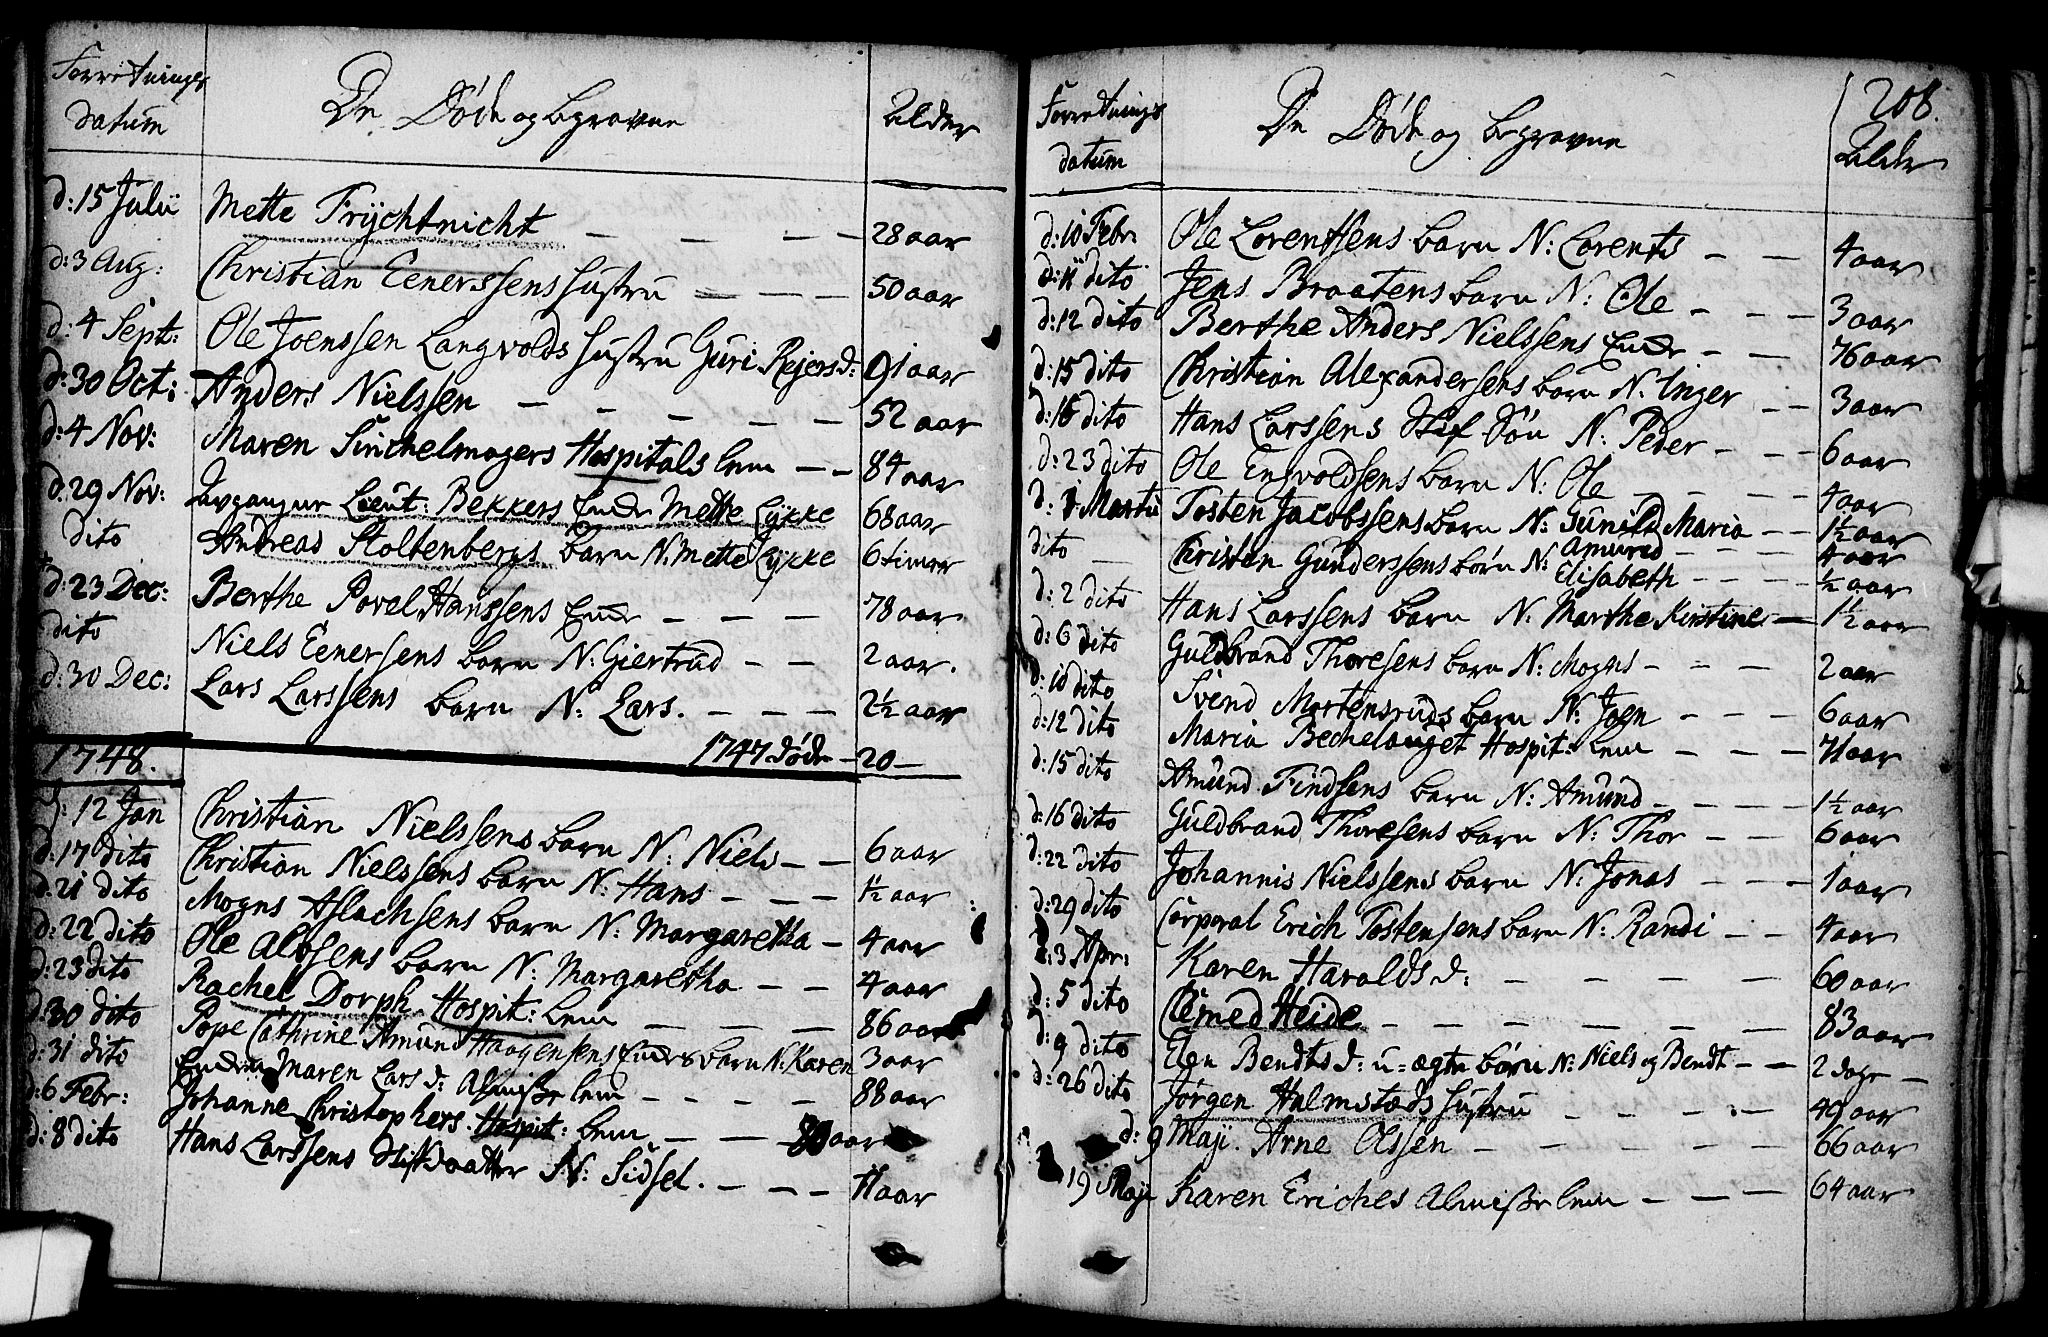 Forretnings datum De Døde og begravne Alder
d: 15 Julii Mette Frychtnicht — — — — 28 aar
d: 3 Aug: Christian Eenerssens Hustru — — — — 50 aar
d: 4 Sept: Ole Joenssen Langvolds Hustru Guri Rejersd: 91 aar
d: 30 Oct: Anders Nielssen — — — — — 52 aar
d: 4 Nov: Maren Sinchelmagers Hospitals lem — — 84 aar
d. 29 Nov: Lieut: Bekkers Enche Mette Lykke 68 aar
dito Andreas Stoltenbergs barn N. Mette Lykke 6 timer
d: 23 Dec: Berthe Povel Hanssens Enche — — — 78 aar
dito Niels Eenersens barn N: Giertrud — — 2 aar.
d: 30 Dec: Lars Larssens barn N: Lars. — — — 2½ aar
1748. 1747 døde — 20 —
d: 12 Jan Christian Nielssens barn N: Niels — — 6 aar
d: 17 dito Christian Nielssens barn N: Hans — — — 1½ aar
d. 21 dito Mogns Aslachsens barn N: Margaretha — 4 aar
d: 22 dito Ole Albsens barn N: Margaretha — — 4 aar
d: 23 dito Rachel Dorph Hospit: lem — — — 86 aar
d: 30 dito Pope Cathrine Amund Haagensens Enches barn N: Karen 3 aar
d: 31 dito Enchen Maren Lars d: Almisse lem — — — — 88 aar
d: 6 Febr: Johanne Christophers. Hospit: lem — — 80 aar
d: 8 dito Hans Larssens Stifdaatter N: Sidsel. — — — 11 aar
208.
Forretnings datum De Døde og begravne Alder
d: 10 Febr: Ole Lorentsens barn N: Lorents — — 4 aar
d: 11 dito Jens Braatens barn N: Ole — — — 3 aar
d: 12 dito Berthe Anders Nielssens Enche — — 76 aar
d: 15 dito Christian Alexandersens barn N: Inger — — 3 aar
d: 16 dito Hans Larssens Stif Søn N: Peder — — — 6 aar
d: 23 dito Ole Engvoldsens barn N: Ole — — — — 4 aar
d: 1 Martii Tosten Jacobssens barn N: Gunild Maria — — 1½ aar
dito — Christen Gunderssens børn N: Amund — — — — 4 aar
Elisabeth — — — — ½ aar
d: 2 dito Hans Larssens barn N: Marthe Kirstine — 1½ aar
d: 6 dito Guldbrand Thoresens barn N: Mogns — — — 2 aar
d: 10 dito Svend Mortensruds barn N: Joen — — — 6 aar
d: 12 dito Maria Bechelauget Hospit: lem — — — 71 aar
d: 15 dito Amund Findsens barn N: Amund — — — — 1½ aar
d: 16 dito Guldbrand Thoresens barn N: Thor — — 6 aar
d: 22 dito Johannis Nielssens barn N: Jonas — — — 1 aar
d: 29 dito Corporal Erich Tostensens barn N: Randi — — 4 aar
d: 3 Apr: Karen Haralds d: — — — — — 60 aar
d: 5 dito Clemed Heide — — — — — — 83 aar
d: 9 dito Elen Bendts d: u-ægte børn N: Niels og Bendt — — 2 dage —
d: 26 dito Jørgen Halmstads Hustru — — — — 49 aar
d: 9 Maji. Arne Olssen — — — — — 66 aar
19 Maji Karen Eriches Almisse lem — — — 64 aar